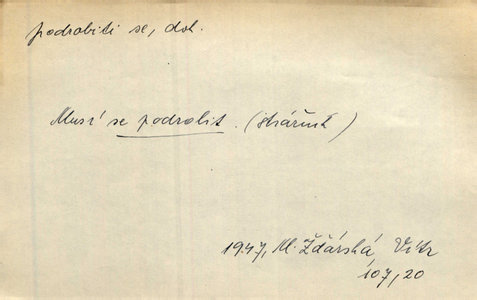 podrobiti se, dok.
Musí se podrobit. (
1947, M. Žďárská, Vítr
107, 20